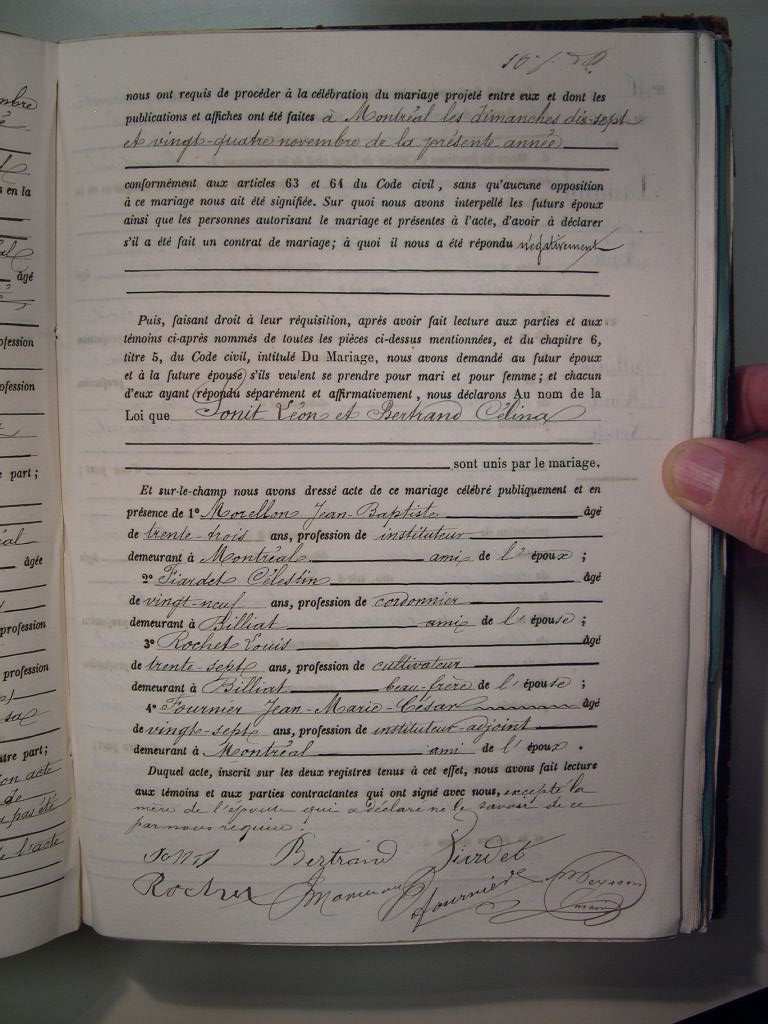 mbre
nous ont requis de procéder à la célébration du mariage projeté entre eux et dont les
publications et affiches ont été faites à Montréal les dimanches dix-sept
et vingt-quatre novembre de la présente année
conformément aux articles 63 et 64 du Code civil, sans qu'aucune opposition
à ce mariage nous ait été signifiée. Sur quoi nous avons interpellé les futurs époux
ainsi que les personnes autorisant le mariage et présentes à l'acte, d'avoir à déclarer
s'il a été fait un contrat de mariage; à quoi il nous a été répondu négativement
Puis, faisant droit à leur réquisition, après avoir fait lecture aux parties et aux
témoins ci-après nommés de toutes les pièces ci-dessus mentionnées, et du chapitre 6,
titre 5, du Code civil, intitulé Du Mariage, nous avons demandé au futur époux
et à la future épouse s'ils veulent se prendre pour mari et pour femme; et chacun
d'eux ayant répondu séparément et affirmativement, nous déclarons Au nom de la
Loi que Sonit Léon et Bertrand Célina
sont unis par le mariage.
Et sur-le-champ nous avons dressé acte de ce mariage célébré publiquement et en
présence de 1º Morellon Jean-Baptiste âgé
de trente-trois ans, profession de instituteur
demeurant à Montréal ami de l' époux ;
2º Fiardet Célestin âgé
de vingt-neuf ans, profession de cordonnier
demeurant à Billiat ami de l' épouse ;
3º Rochet Louis âgé
de trente-sept ans, profession de cultivateur
demeurant à Billiat beau-frère de l' épouse ;
4º Fournier Jean-Marie-César âgé
de vingt-sept ans, profession de instituteur-adjoint
demeurant à Montréal ami de l' époux .
Duquel acte, inscrit sur les deux registres tenus à cet effet, nous avons fait lecture
aux témoins et aux parties contractantes qui ont signé avec nous, excepté la
mère de l'épouse qui a déclaré ne le savoir de ce
par nous requise.
Sonit Bertrand Fiardet
Rochet Fournier